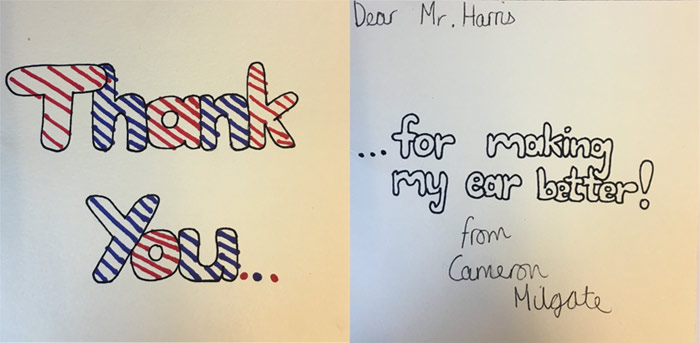 Thank
You...
Dear Mr. Harris
...for making
my ear better!
from
Cameron
Milgate